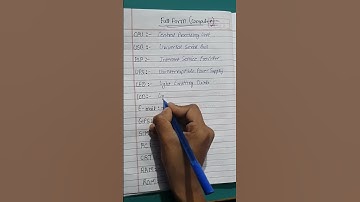 Full Form (Computer)
CPU :- Central Processing Unit
USB :- Universal Serial Bus
:- Internet Service Provider
UPS :- Uninterruptible Power Supply
LED :- Light Emitting Diode
LCD :-
E-mail :-
GPS
PC